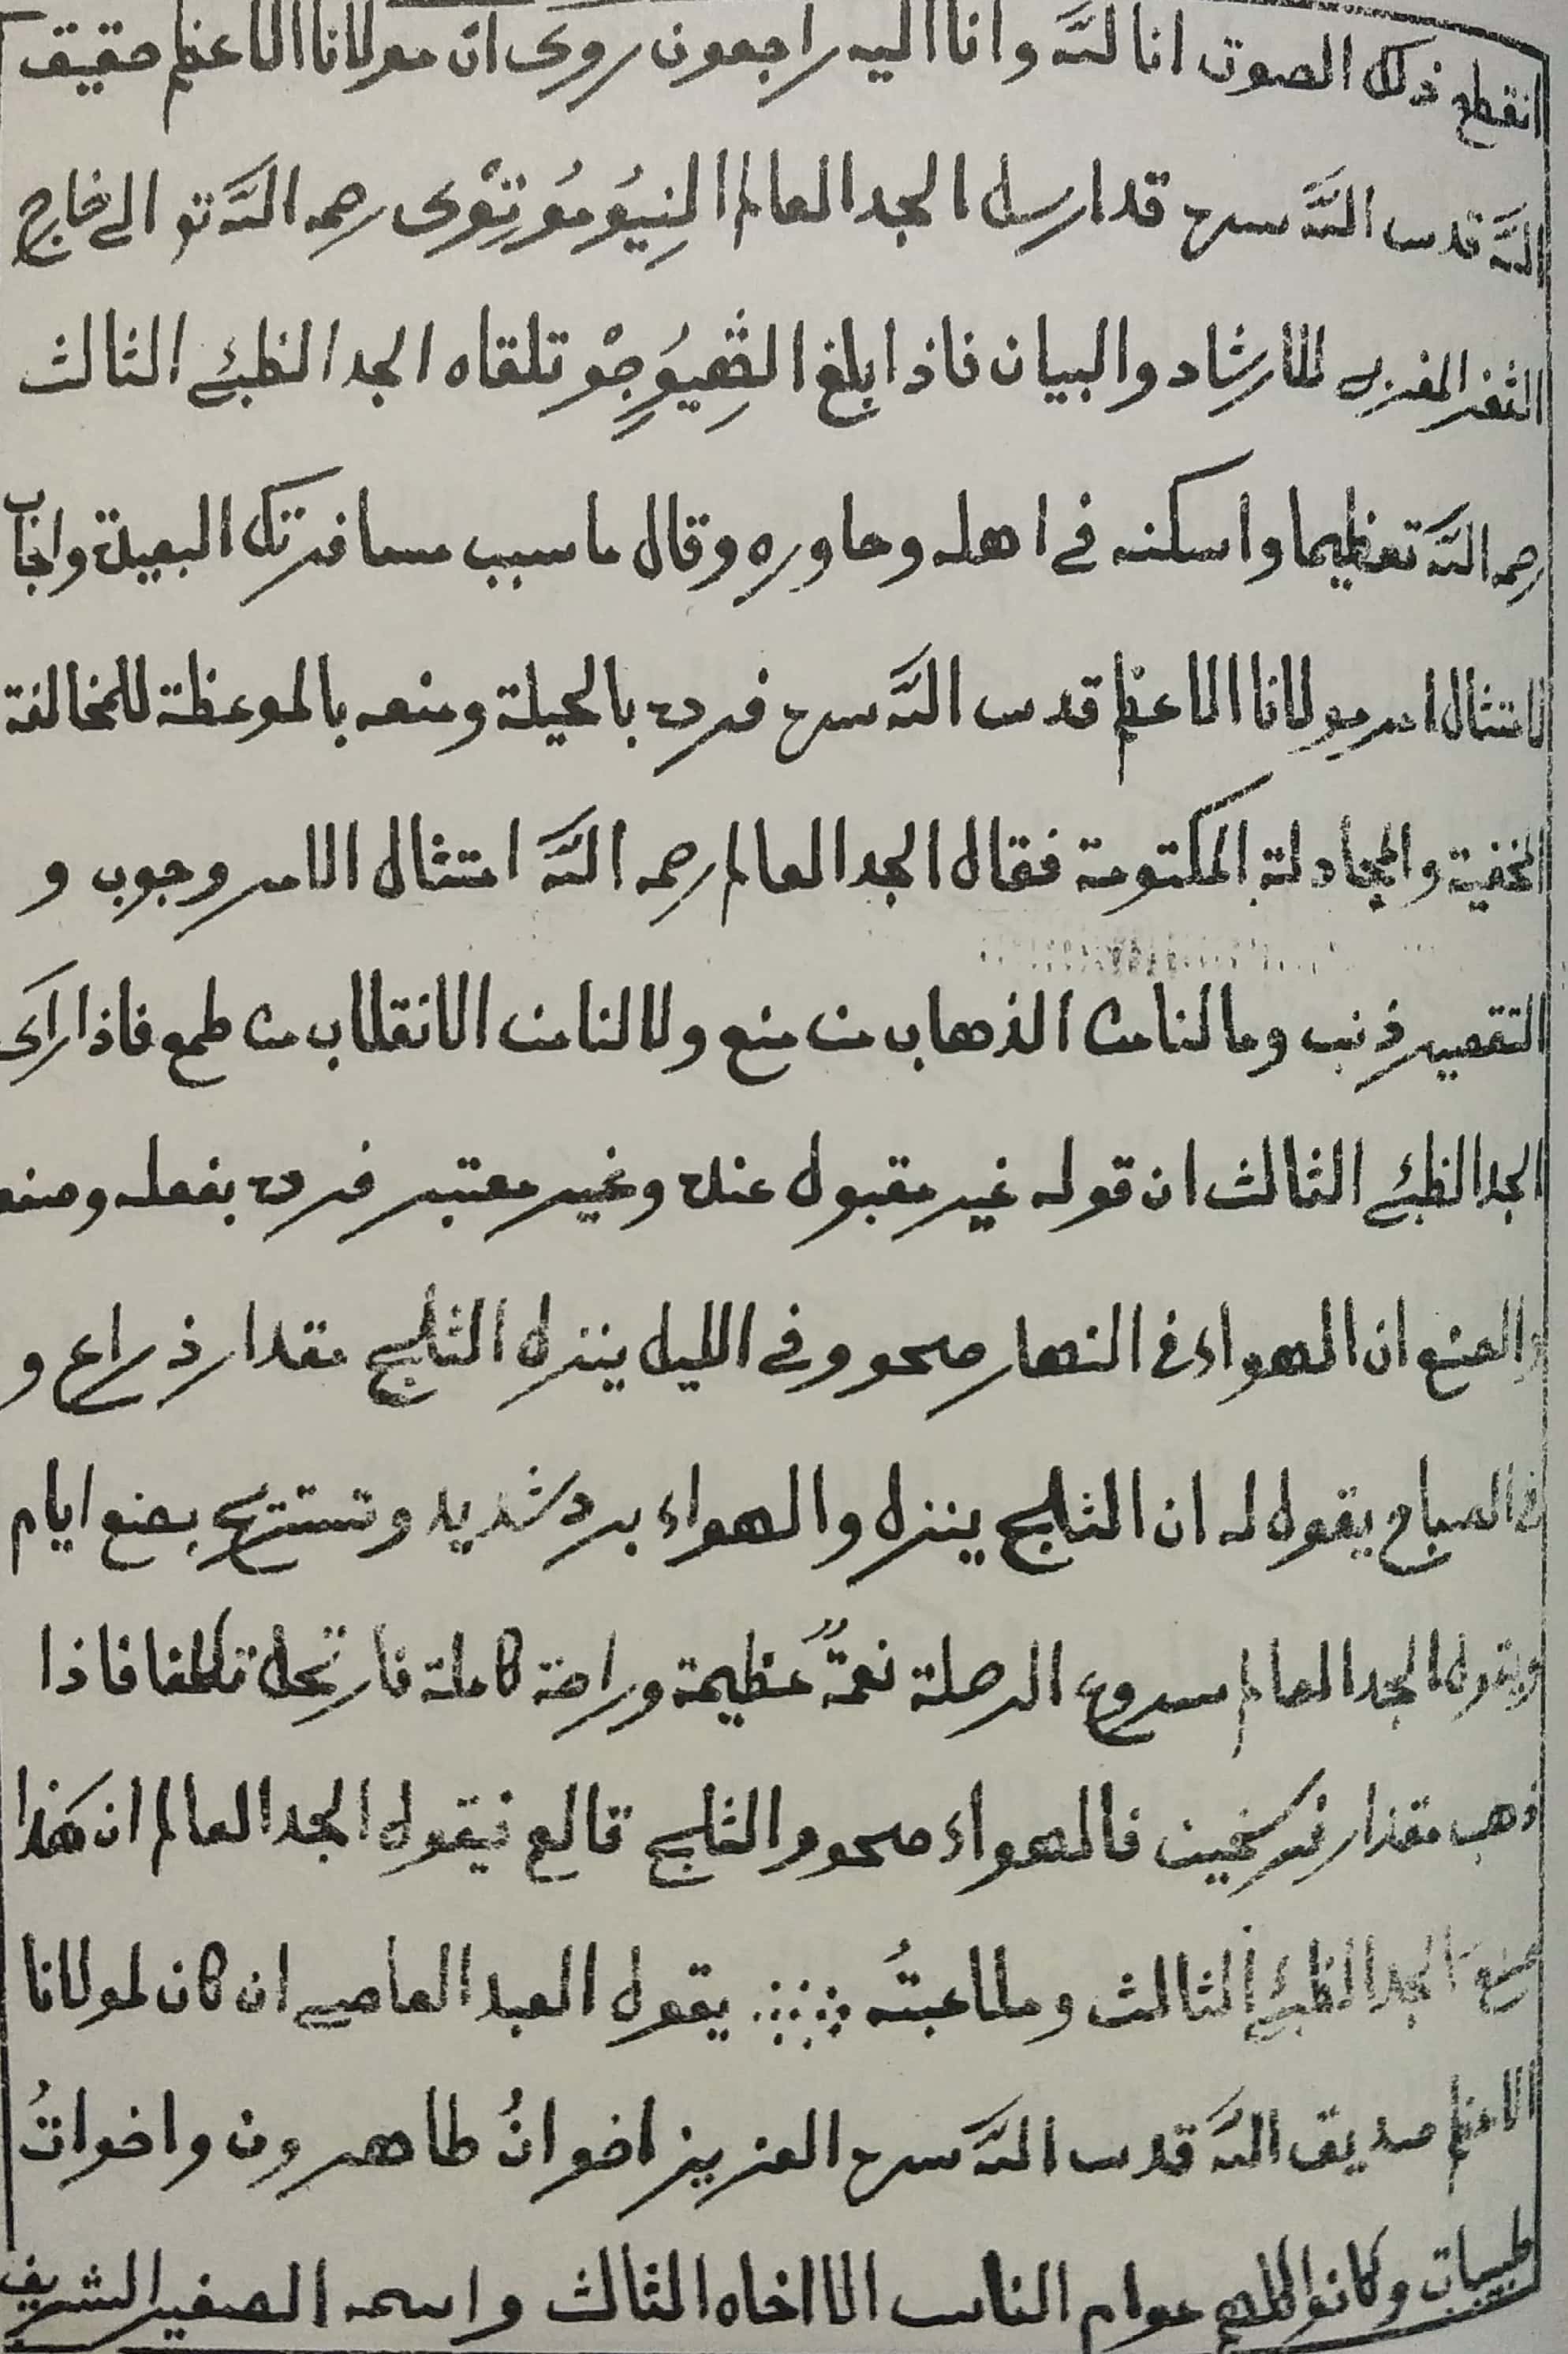 انقطع ذلك الصوت انا لله وانا اليه راجعون روى ان مولانا الاعظم حقيق
الله قدس الله سره قد ارسل الجد العالم النِيُومُورِتْوِى رحمه الله تع الى خارج
الثغر المغربى للارشاد والبيان فاذا بلغ الشِعِيوُجِوْ تلقاه الجد الظبئ الثالث
رحمه الله تعظيما واسكنه فى اهله وحاوره وقال ما سبب مسافرتك البعيدة واجاب
لامتثال امر مولانا الاعظم قدس الله سره فرده بالحيلة ومنعه بالموعظة للمخالفة
الخفية والمجادلة المكتومة فقال الجد العالم رحمه الله امتثال الامر وجوب و
التقصير ذنب وما لنا من الذهاب من منع ولا لنا من الانقلاب من طمع فاذا راَى
الجد الظبئ الثالث ان قوله غير مقبول عنده وغير معتبر فرده بفعله وصنعه
والصنع ان الهواء فى النهار صحو وفى الليل ينزل الثلج مقدار ذراع و
فى الصباح يقول له ان الثلج ينزل والهواء برد شديد وتستريح بضع ايام
ويقول الجد العالم سروع الرحلة نعمةٌ عظيمة وراحة كاملة فارتحل تلطفا فاذا
ذهب مقدار فرسخين فالهواء صحو والثلج قالع فيقول الجد العالم ان هذا
صنع الجد الظبئ الثالث وملاعبتُه يقول العبد العاصى ان كان لمولانا
الاعظم صديق الله قدس الله سره العزيز اخوانُ طاهرون واخواتُ
طيبات وكانوا كلهم عوام الناس الا اخاه الثالث واسمه الصغير الشريف